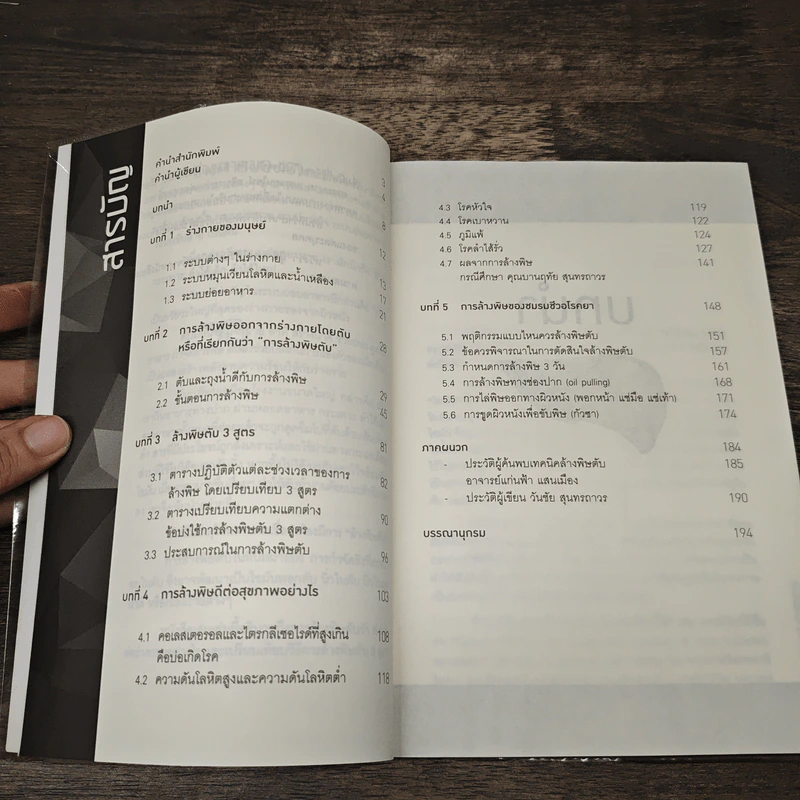 สารบัญ
คำนำสำนักพิมพ์ 3
คำนำผู้เขียน 4
บทนำ 8
บทที่ 1 ร่างกายของมนุษย์ 12
1.1 ระบบต่างๆ ในร่างกาย 13
1.2 ระบบหมุนเวียนโลหิตและน้ำเหลือง 17
1.3 ระบบย่อยอาหาร 21
บทที่ 2 การล้างพิษออกจากร่างกายโดยตับ 28
หรือที่เรียกกันว่า "การล้างพิษตับ"
2.1 ตับและถุงน้ำดีกับการล้างพิษ 29
2.2 ขั้นตอนการล้างพิษ 45
บทที่ 3 ล้างพิษตับ 3 สูตร 81
3.1 ตารางปฏิบัติตัวแต่ละช่วงเวลาของการ 82
ล้างพิษ โดยเปรียบเทียบ 3 สูตร
3.2 ตารางเปรียบเทียบความแตกต่าง 90
ข้อบ่งใช้การล้างพิษตับ 3 สูตร
3.3 ประสบการณ์ในการล้างพิษตับ 96
บทที่ 4 การล้างพิษดีต่อสุขภาพอย่างไร 103
4.1 คอเลสเตอรอลและไตรกลีเซอไรด์ที่สูงเกิน 108
คือบ่อเกิดโรค
4.2 ความดันโลหิตสูงและความดันโลหิตต่ำ 118
4.3 โรคหัวใจ 119
4.4 โรคเบาหวาน 122
4.5 ภูมิแพ้ 124
4.6 โรคลำไส้รั่ว 127
4.7 ผลจากการล้างพิษ 141
กรณีศึกษา คุณบานฤทัย สุนทรถาวร
บทที่ 5 การล้างพิษของชมรมชีวอโรคยา 148
5.1 พฤติกรรมแบบไหนควรล้างพิษตับ 151
5.2 ข้อควรพิจารณาในการตัดสินใจล้างพิษตับ 157
5.3 กำหนดการล้างพิษ 3 วัน 161
5.4 การล้างพิษทางช่องปาก (oil pulling) 168
5.5 การไล่พิษออกทางผิวหนัง (พอกหน้า แช่มือ แช่เท้า) 171
5.6 การขูดผิวหนังเพื่อขับพิษ (กัวซา) 174
ภาคผนวก 184
- ประวัติผู้ค้นพบเทคนิคล้างพิษตับ 185
อาจารย์แก่นฟ้า แสนเมือง
- ประวัติผู้เขียน วันชัย สุนทรถาวร 190
บรรณานุกรม 194